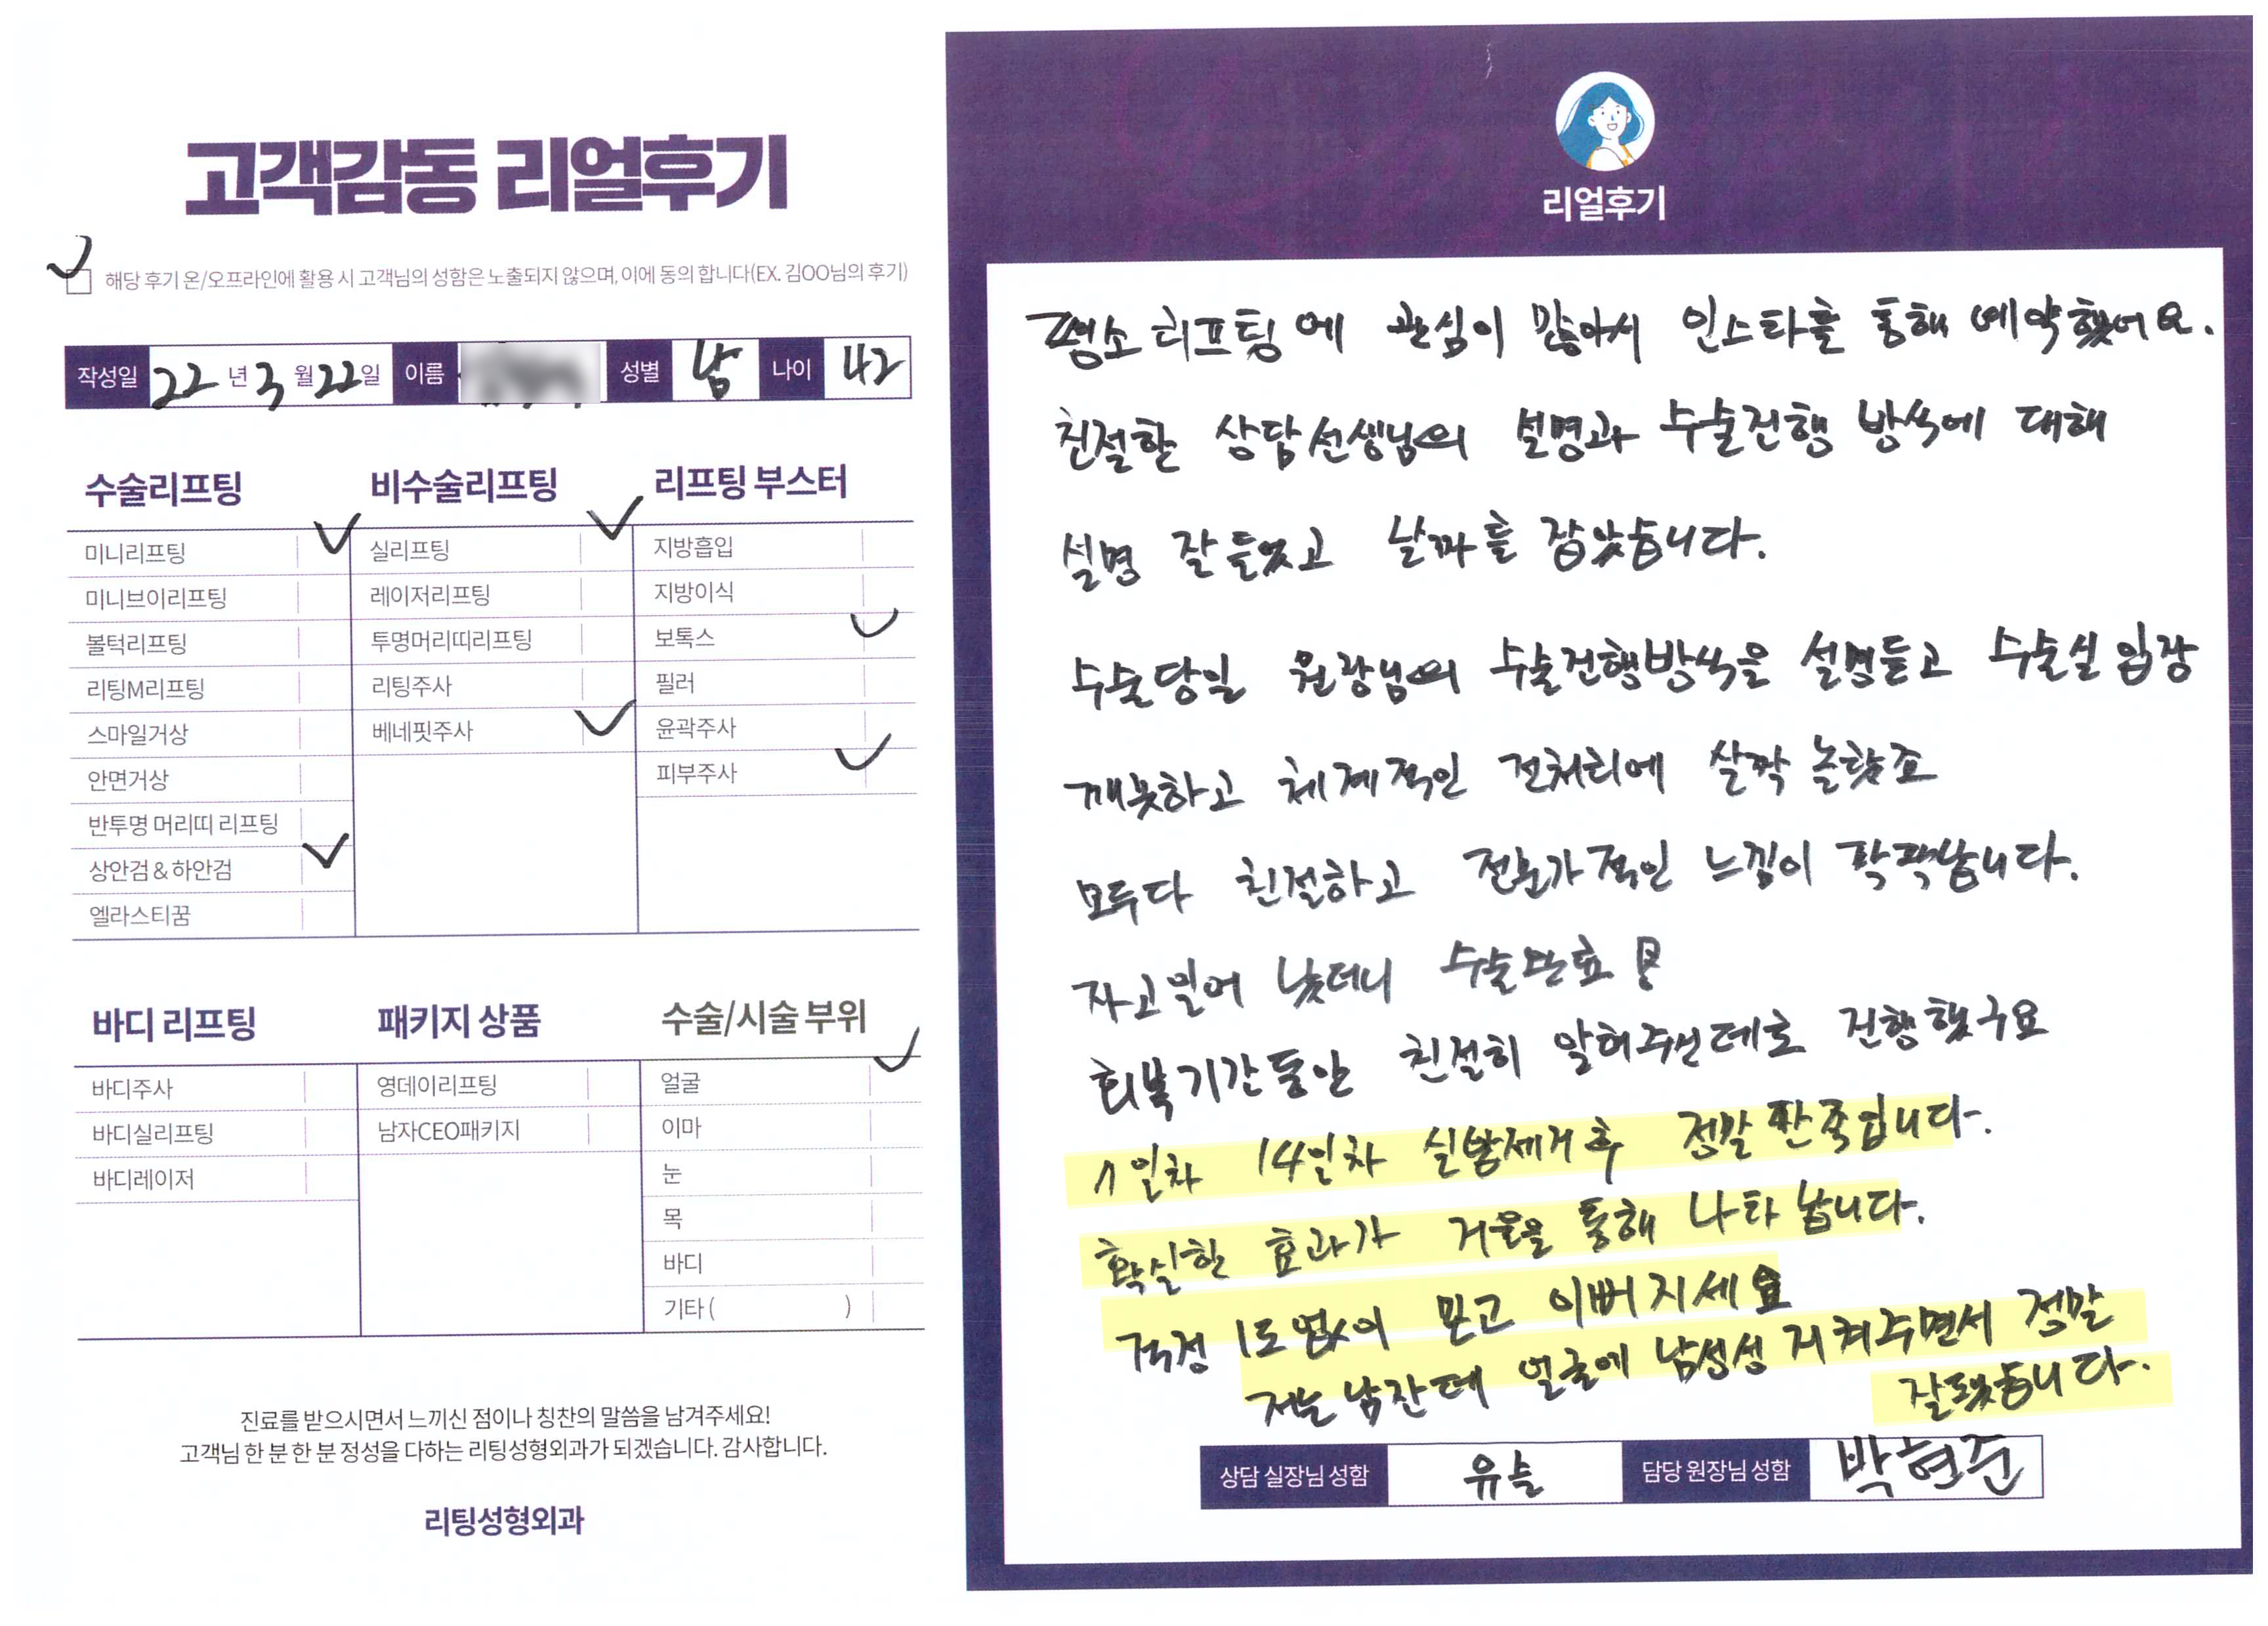 고객감동 리얼후기
해당 후기 온/오프라인에 활용 시 고객님의 성함은 노출되지 않으며, 이에 동의 합니다(EX. 김OO님의 후기)
작성일 22년 3월 22일 이름 성별 남 나이 42
수술리프팅
미니리프팅
미니브이리프팅
볼턱리프팅
리팅M리프팅
스마일거상
안면거상
반투명 머리띠 리프팅
상안검 & 하안검
엘라스티꿈
비수술리프팅
실리프팅
레이저리프팅
투명머리띠리프팅
리팅주사
베네핏주사
리프팅 부스터
지방흡입
지방이식
보톡스
필러
윤곽주사
피부주사
바디 리프팅
바디주사
바디실리프팅
바디레이저
패키지 상품
영데이리프팅
남자CEO패키지
수술/시술 부위
얼굴
이마
눈
목
바디
기타 ( )
진료를 받으시면서 느끼신 점이나 칭찬의 말씀을 남겨주세요!
고객님 한 분 한 분 정성을 다하는 리팅성형외과가 되겠습니다. 감사합니다.
리팅성형외과
리얼후기
평소 리프팅에 관심이 많아서 인스타를 통해 예약했어요.
친절한 상담선생님의 설명과 수술진행 방식에 대해
설명 잘 들었고 날짜를 잡았습니다.
수술당일 원장님의 수술진행방식을 설명듣고 수술실 입장
깨끗하고 체계적인 전처리에 살짝 놀랐죠
모두다 친절하고 전문가적인 느낌이 팍팍납니다.
자고일어 났더니 수술완료
회복기간동안 친절히 알려주신데로 진행했구요
일차 14일차 실밥제거후 정말 만족입니다.
확실한 효과가 거울을 통해 나타납니다.
걱정 1도 없이 믿고 이뻐지세요
저는 남잔데 얼굴에 남성성 지켜주면서 정말
잘됐습니다.
상담 실장님 성함 유슬 담당 원장님 성함 박현준